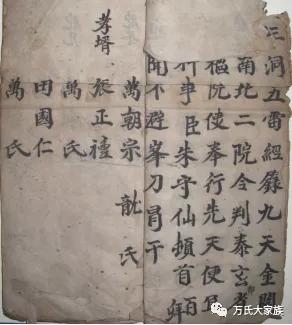 三洞五雷經籙九天金闕
南北二院令判泰玄考
樞院使奉行先天便宜
行事臣朱守仙頓首百拜
聞不避峯刀冒干
萬朝宗 氏
孝婿 張正禮
萬氏
田國仁
萬氏
万氏大家族